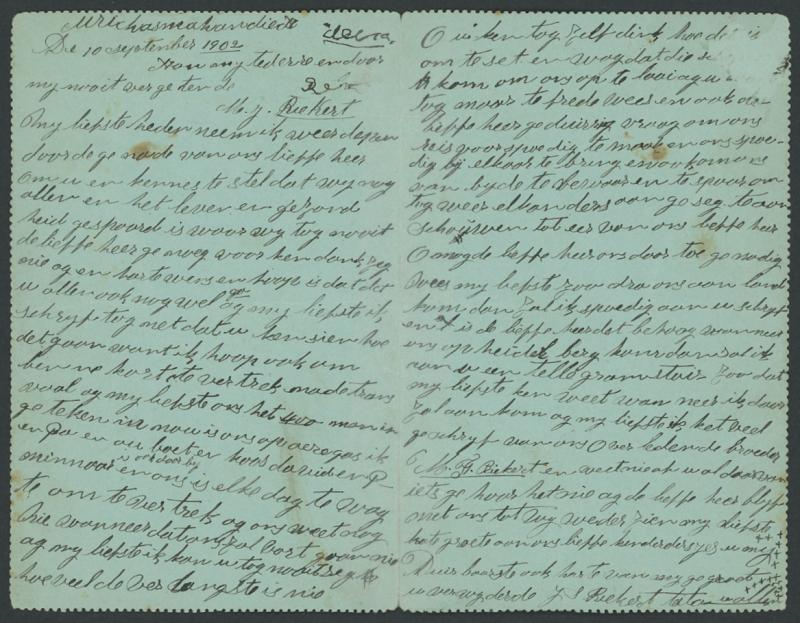 De 10 September 1902
Aan my tedere en door
my nooit vergetende
M. J. Riekert
My liefste heden neem ik weer de pen
door de genade van ons lieffe heer
om u en kennes te stel dat wy nog
allen en het leven en gezond
heid gespoord is waar wy tog nooit
de lieffe heer genoeg voor ken dank zeg
nie og en harte wens en hoop is dat det
u allen ook nog wel go og my liefste ik
schryf tog met dat u ken sien hoe
det gaan want ik hoop ook om
ben ne kort te vertrek na de trans
vaal og my liefste ons het 400 man in
geteken en nou is ons op ik
en Pa en ou boeter koos david en P
minnaar en ons is elke dag te wag
te om te vertrek og ons weet nog
nie wanneer dat ons zal vort gaan nie
ag my liefste ik kan u tog nooit seg
hoe veel de verlangste is nie
O u ken tog zelf dink hoe det is
om te set en wag dat die
kom om ons op te laai ag u
tog maar te frede wees en ook de
lieffe heer gedurig vraag om ons
reis voorspoedig te maak en ons spoe-
dig by elkaar te bring en ook om ons
van byde te bewaar en te spaar om
tog weer elkanders aangeseg te aan
schouwen tot eer van ons lieffe heer
O mog de lieffe heer ons daar toe genadig
wees my liefste zoo dra ons aan land
kom dan zal ik spoedig aan u schryf
en is de lieffe heer det behaag wanneer
ons op heidelberg kom dan zal ik
aan u een tellegram stuir zoo dat
my liefste ken weet wan neer ik daar
zal aan kom ag my liefste ik het veel
geschryf van ons overledende broeder
M. F. Riekert en weet nie of u al daar van
iets gehoor het nie ag de lieffe heer blyf
met ons tot wy weder zien my liefste
hart groet aan ons lieffe kenderders
Duisend ook harte van my gegroet
u J S Riekert